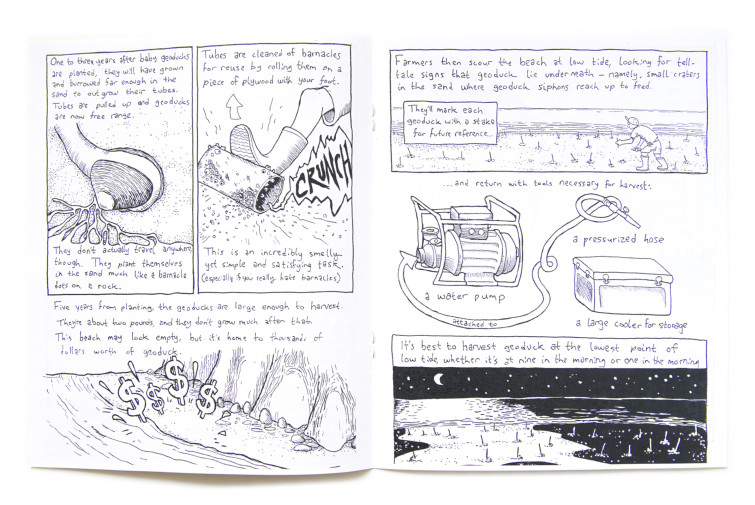 One to three years after baby geoducks
are planted, they will have grown
and burrowed far enough in the
sand to outgrow their tubes.
Tubes are pulled up and geoducks
are now free range.
They don't actually travel anywhere
though. They plant themselves
in the sand much like a barnacle
does on a rock.
Tubes are cleaned of barnacles
for reuse by rolling them on a
piece of plywood with your foot.
CRUNCH
This is an incredibly smelly
yet simple and satisfying task.
(especially if you really hate barnacles)
Five years from planting, the geoducks are large enough to harvest.
They're about two pounds, and they don't grow much after that.
This beach may look empty, but it's home to thousands of
dollars worth of geoduck.
$ $ $ $
Farmers then scour the beach at low tide, looking for tell-
tale signs that geoduck lie underneath – namely, small craters
in the sand where geoduck siphons reach up to feed.
They'll mark each
geoduck with a stake
for future reference...
...and return with tools necessary for harvest:
a pressurized hose
a water pump
attached to
a large cooler for storage
It's best to harvest geoduck at the lowest point of
low tide, whether it's at nine in the morning or one in the morning